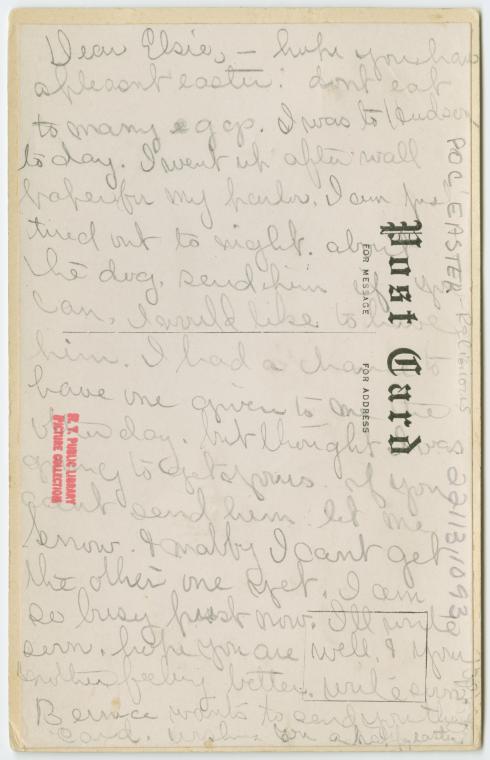 Dear Elsie, – hope you have
a pleasant easter. dont eat
to many eggs. I was to Hudson
to day. I went up after wall
paper for my parlor. I am just
tired out to night. about
the dog. send him if you
can, I would like to have
him. I had a chance to
have one given to me the
other day. but thought I was
going to get yours. if you
can't send him let me
know. & maby I cant get
the other one yet. I am
so busy just now. I'll write
soon. hope you are well. & your
mother feeling better. write soon.
Bernice wants to send you this
card. wishing you a happy easter
Post Card
FOR MESSAGE
FOR ADDRESS
N.Y. PUBLIC LIBRARY
PICTURE COLLECTION
POC, EASTER - Religious